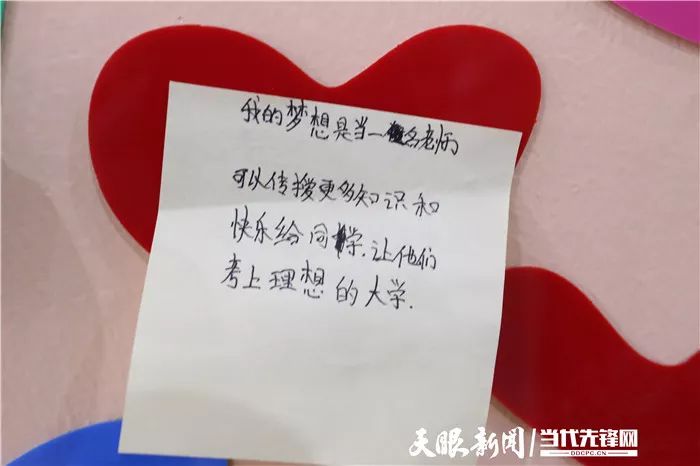 我的梦想是当一名老师
可以传授更多知识和
快乐给同学.让他们
考上理想的大学.
天眼新闻/当代先锋网
DDCPC.CN